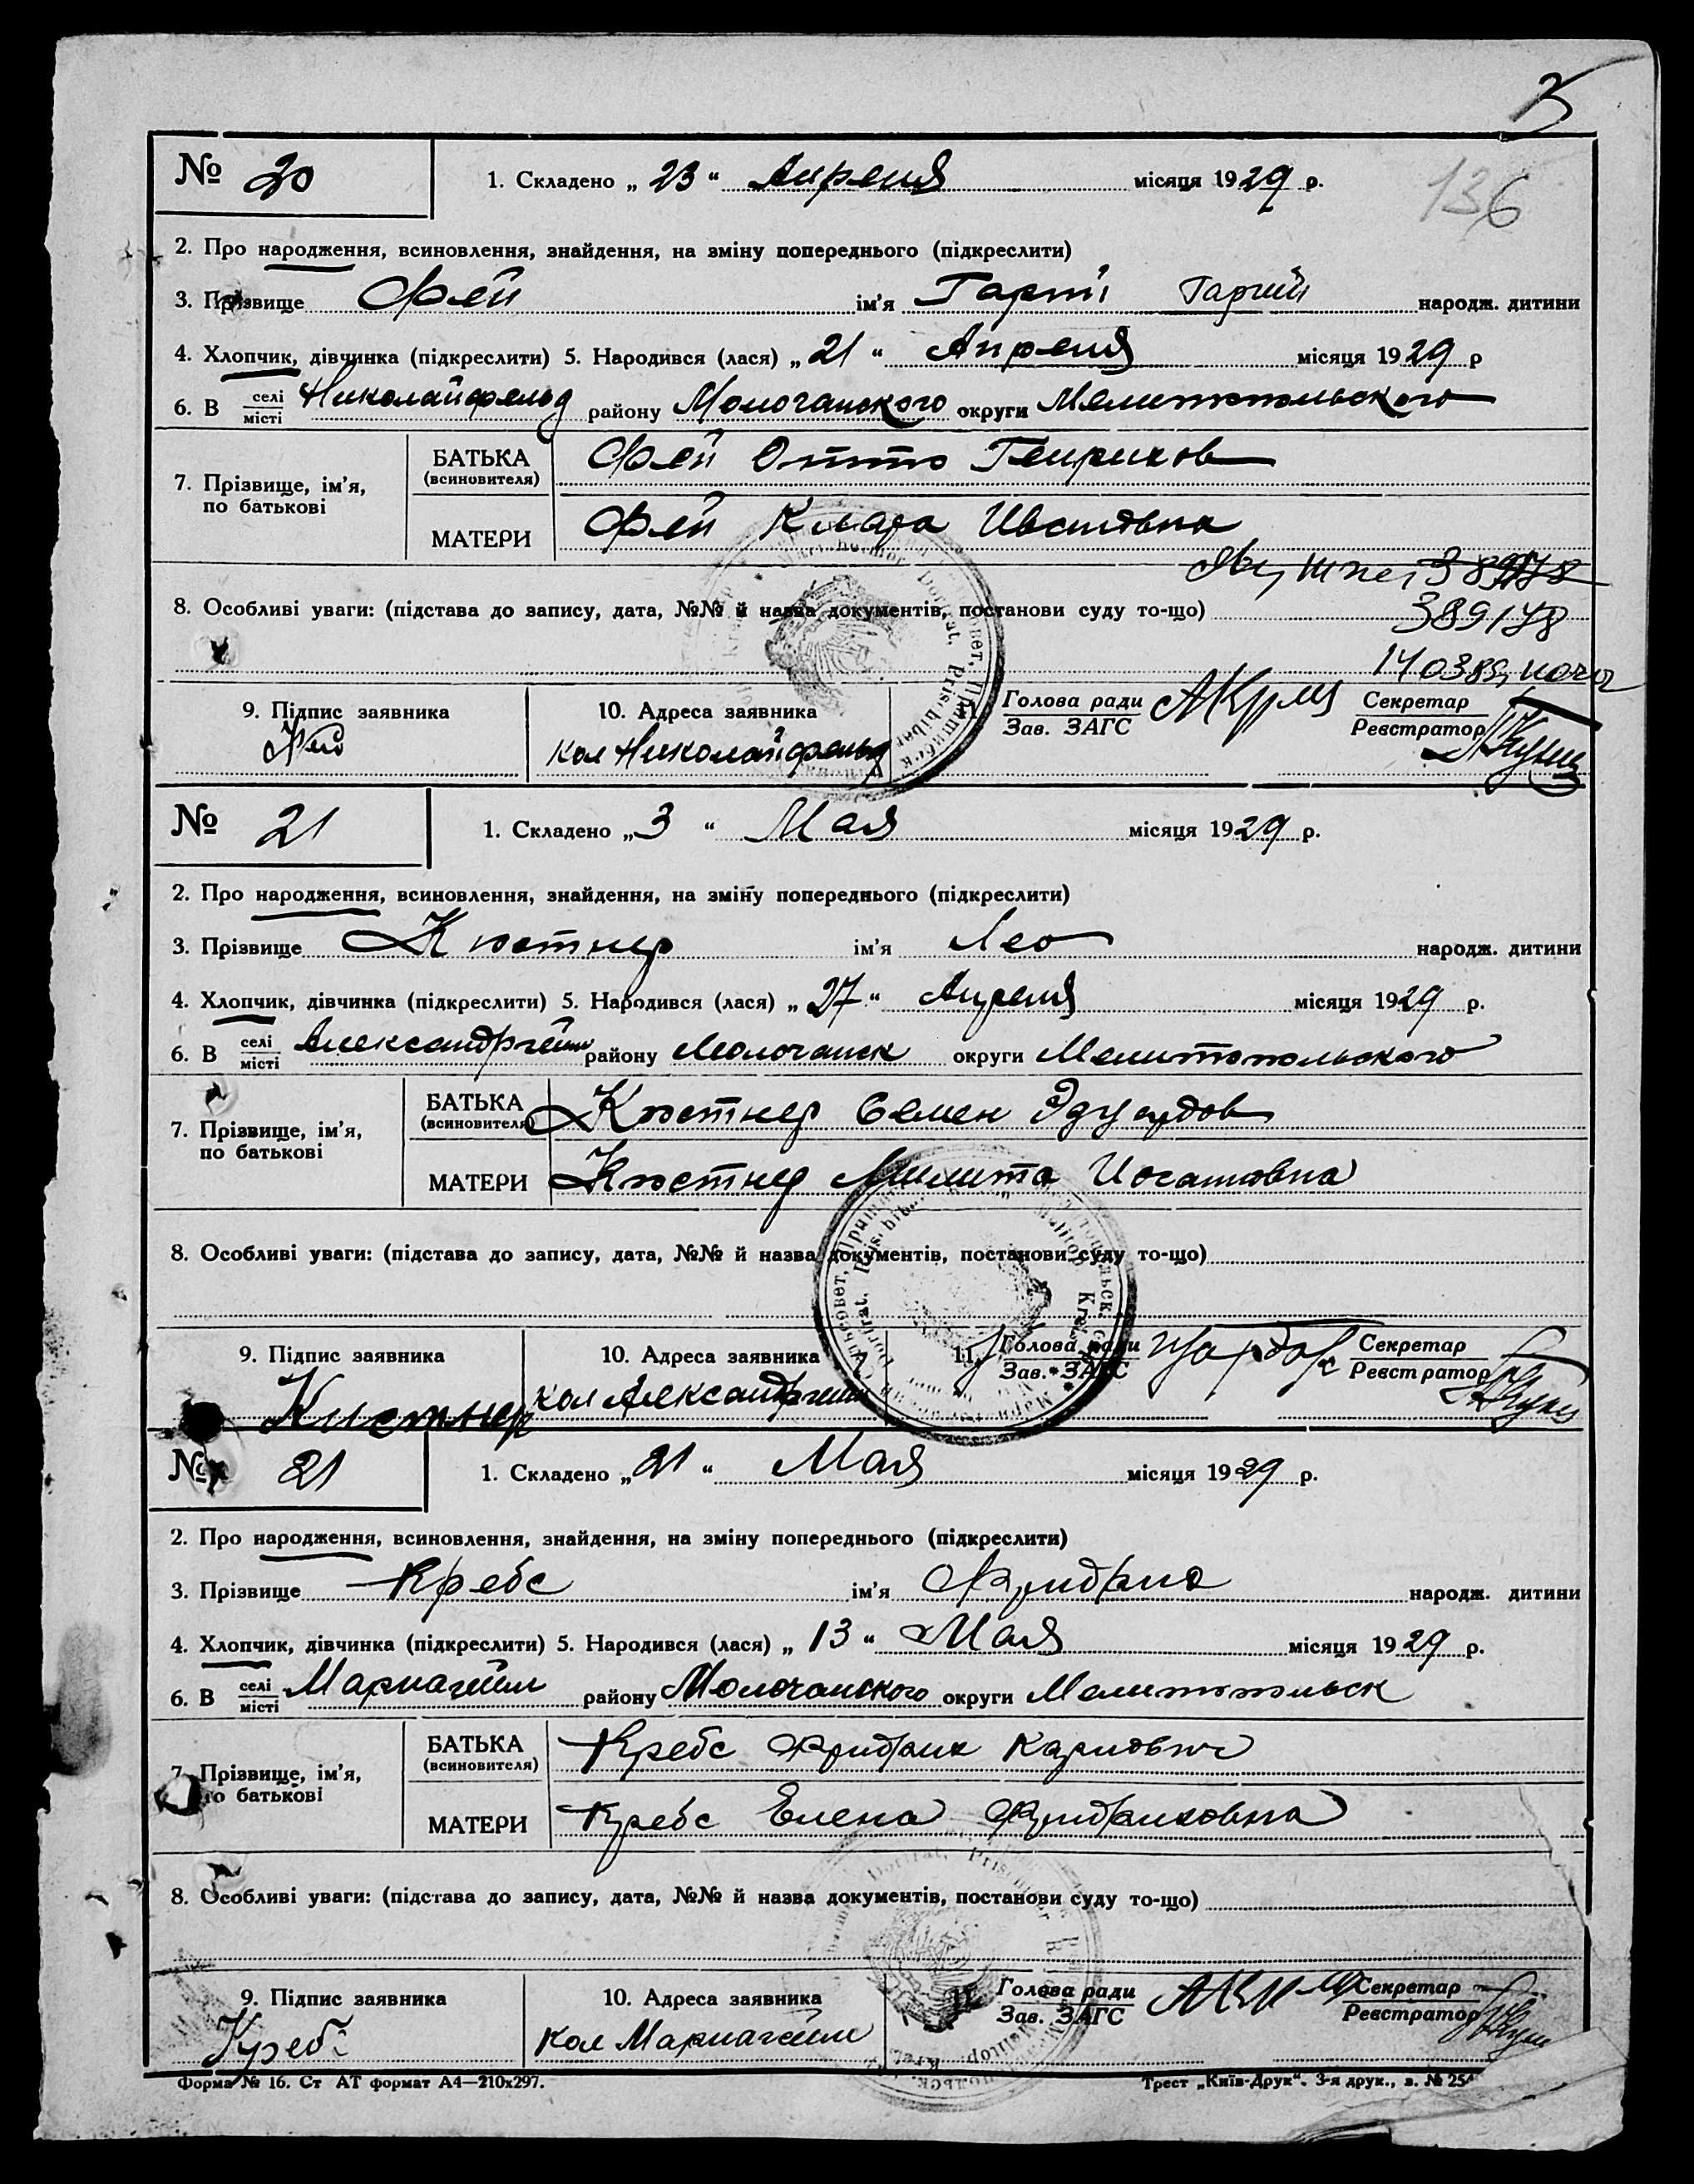 136
№ 20
1. Складено „ 23 “ Апреля місяця 1929 р.
2. Про народження, всиновлення, знайдення, на зміну попереднього (підкреслити)
3. Прізвище Фей ім’я Гарті Гаргий народж. дитини
4. Хлопчик, дівчинка (підкреслити) 5. Народився (лася) „ 21 “ Апреля місяця 1929 р
6. В селі/місті Николайфельд району Молочанского округи Мелитопольского
7. Прізвище, ім’я, по батькові
БАТЬКА (всиновителя) Фей Отто Генрихов
МАТЕРИ Фей Клара Ивановна
38978
8. Особливі уваги: (підстава до запису, дата, №№ й назва документів, постанови суду то-що) 389178
9. Підпис заявника Фей
10. Адреса заявника кол Николайфельд
11. Голова ради/Зав. ЗАГС Секретар/Реєстратор
№ 21
1. Складено „ 3 “ Мая місяця 1929 р.
2. Про народження, всиновлення, знайдення, на зміну попереднього (підкреслити)
3. Прізвище Костнер ім’я Лео народж. дитини
4. Хлопчик, дівчинка (підкреслити) 5. Народився (лася) „ 27 “ Апреля місяця 1929 р.
6. В селі/місті Александргейм району Молочанск округи Мелитопольского
7. Прізвище, ім’я, по батькові
БАТЬКА (всиновителя) Костнер Семен Эдуардов
МАТЕРИ Костнер Милита Иогановна
8. Особливі уваги: (підстава до запису, дата, №№ й назва документів, постанови суду то-що)
9. Підпис заявника Кистнер
10. Адреса заявника кол Александргейм
11. Голова ради/Зав. ЗАГС Секретар/Реєстратор
№ 21
1. Складено „ 21 “ Мая місяця 1929 р.
2. Про народження, всиновлення, знайдення, на зміну попереднього (підкреслити)
3. Прізвище Кребс ім’я Фридрих народж. дитини
4. Хлопчик, дівчинка (підкреслити) 5. Народився (лася) „ 13 “ Мая місяця 1929 р.
6. В селі/місті Мариагейм району Молочанского округи Мелитопольск
7. Прізвище, ім’я, по батькові
БАТЬКА (всиновителя) Кребс Фридрих Карлович
МАТЕРИ Кребс Елена Фридриховна
8. Особливі уваги: (підстава до запису, дата, №№ й назва документів, постанови суду то-що)
9. Підпис заявника Кребс
10. Адреса заявника кол Мариагейм
11. Голова ради/Зав. ЗАГС Секретар/Реєстратор
Форма № 16. Ст АТ формат А4—210х297.
Трест „Київ-Друк“. 3-я друк., з. № 254